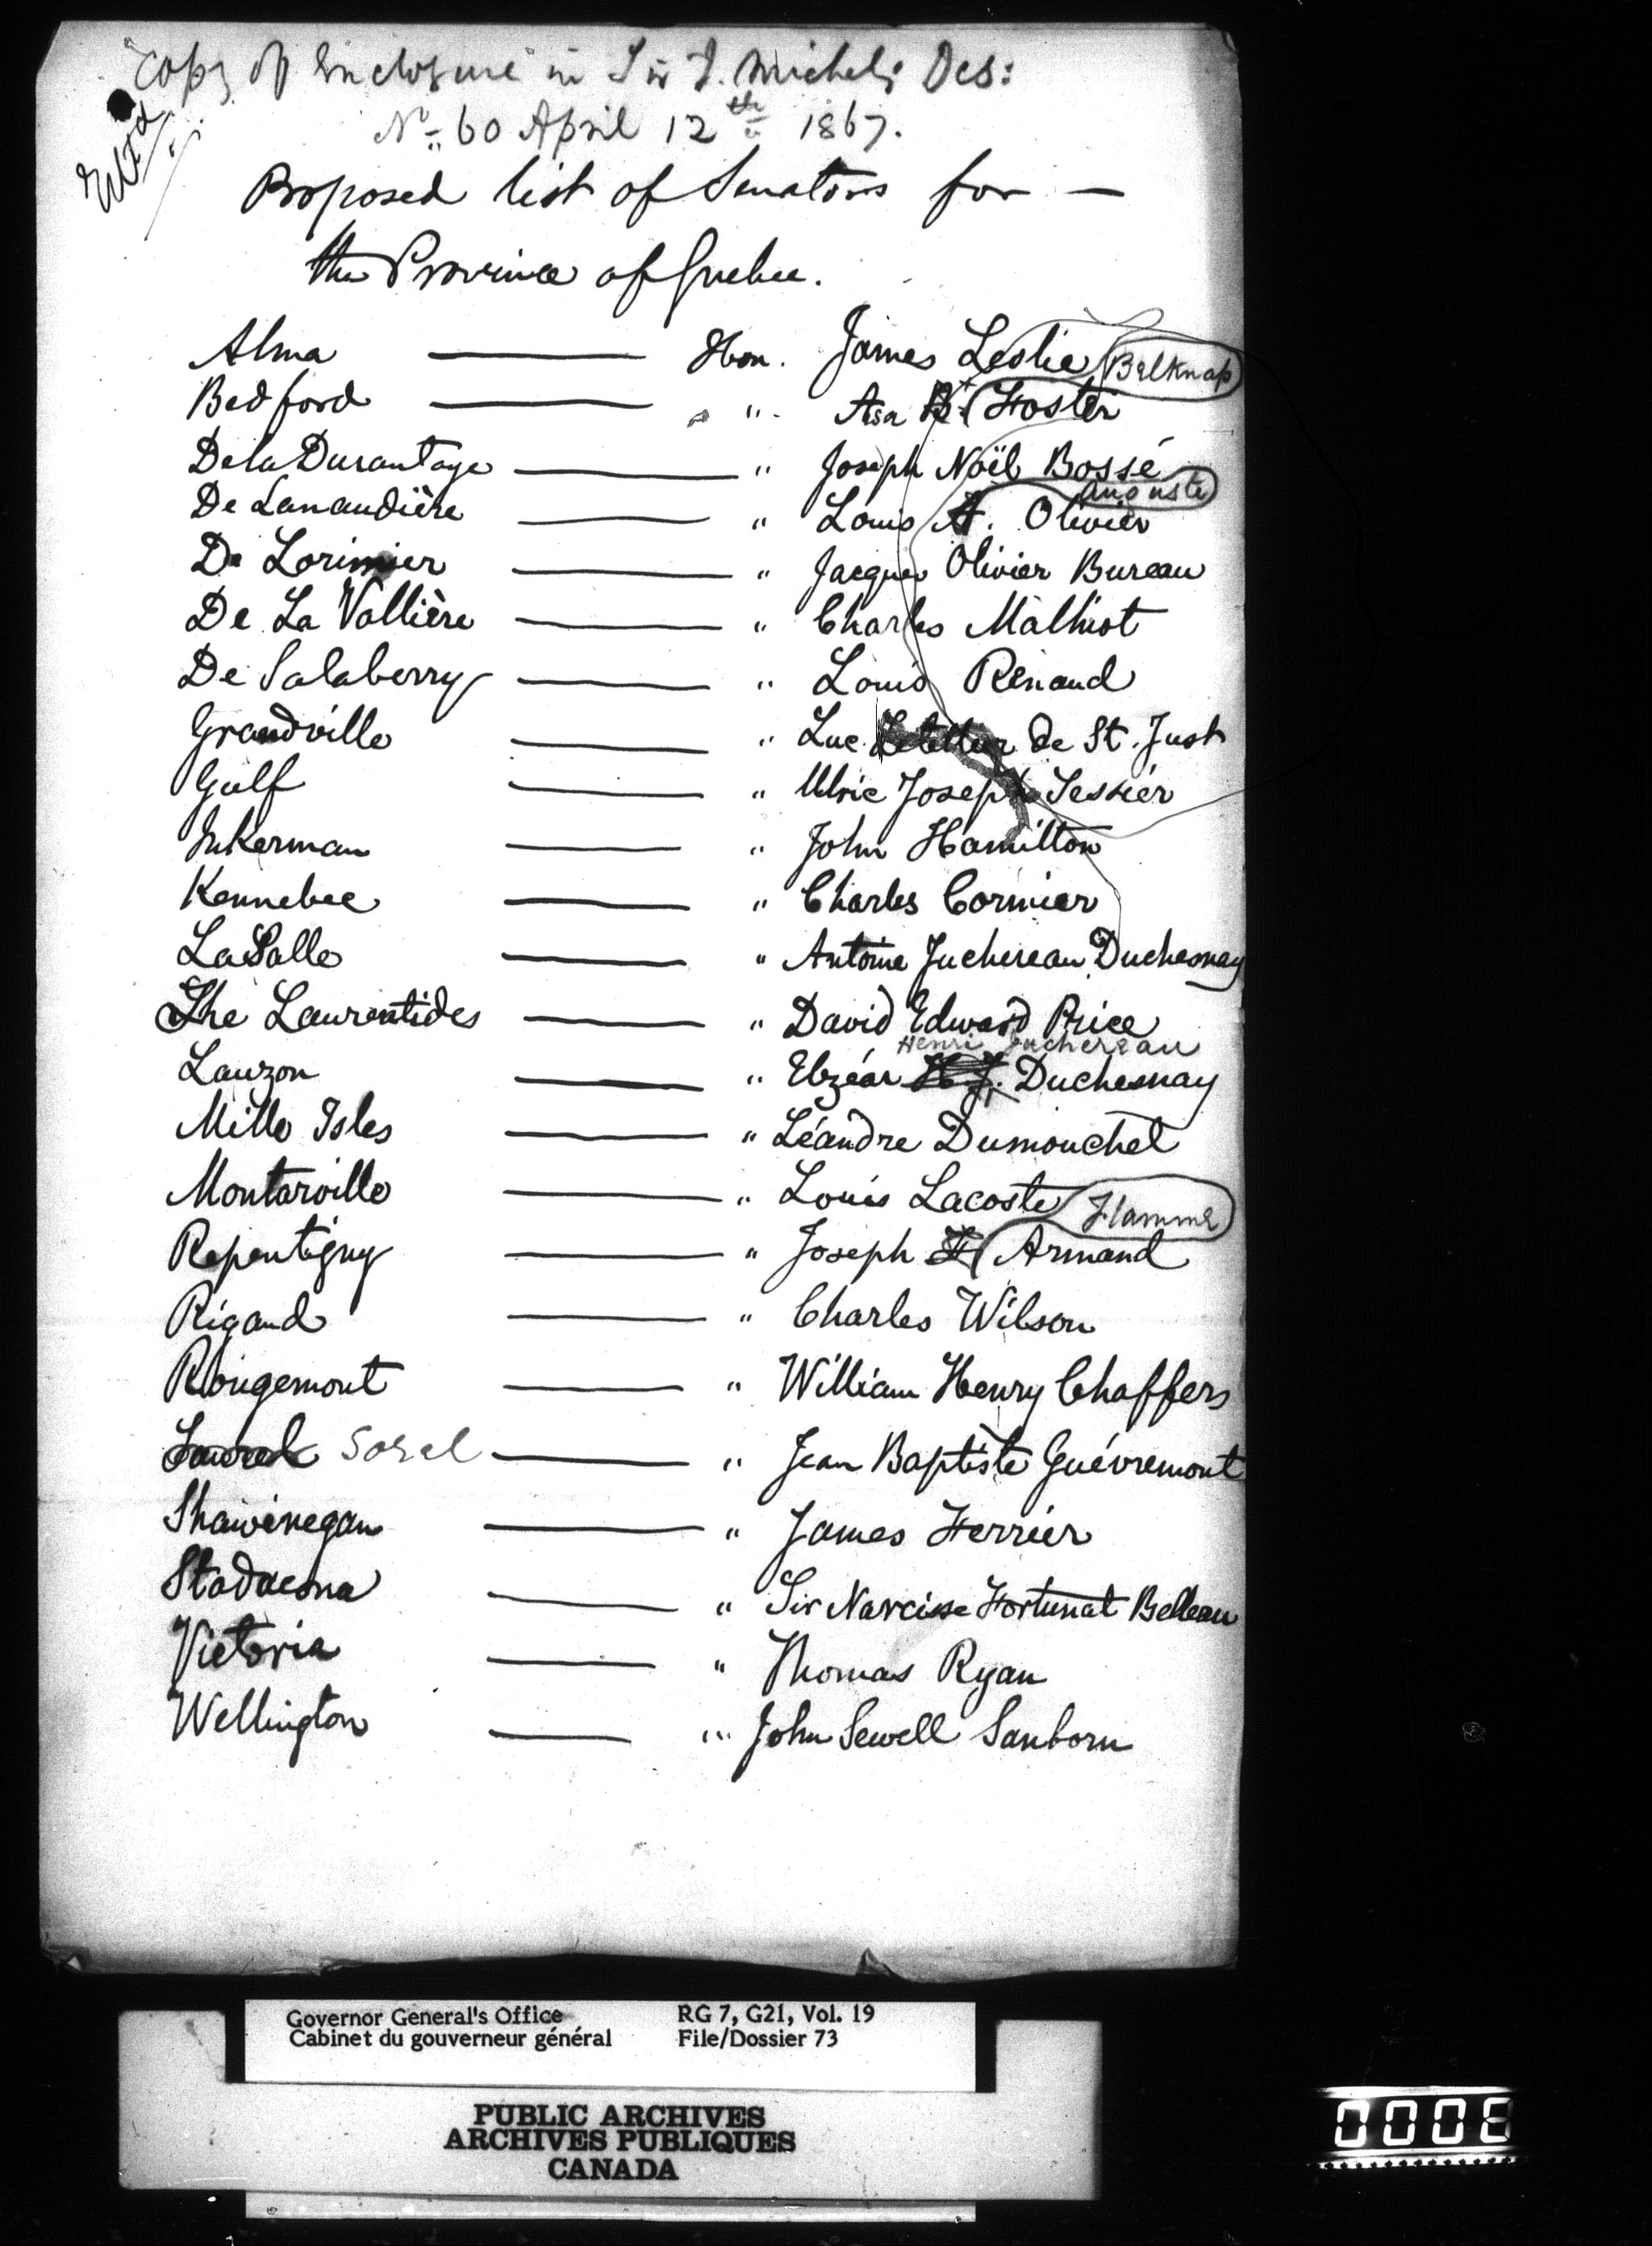 Copy of Enclosure in Sir J. Michel's Des:
No 60 April 12th 1867.
Proposed list of Senators for —
the Province of Quebec.
Alma — Hon. James Leslie
Belknap
Bedford — " Asa B. Foster
De la Durantaye — " Joseph Noël Bossé
Auguste
De Lanaudière — " Louis A. Olivier
De Lorimier — " Jacques Olivier Bureau
De La Vallière — " Charles Malhiot
De Salaberry — " Louis Renaud
Grandville — " Luc Letellier de St. Just
Gulf — " Ulric Joseph Tessier
Inkerman — " John Hamilton
Kennebec — " Charles Cormier
LaSalle — " Antoine Juchereau Duchesnay
The Laurentides — " David Edward Price
Henri Juchereau
Lauzon — " Elzéar H J. Duchesnay
Mille Isles — " Léandre Dumouchel
Montarville — " Louis Lacoste
Flamme
Repentigny — " Joseph F Armand
Rigaud — " Charles Wilson
Rougemont — " William Henry Chaffers
Saurel Sorel — " Jean Baptiste Guévremont
Shawinegan — " James Ferrier
Stadacona — " Sir Narcisse Fortunat Belleau
Victoria — " Thomas Ryan
Wellington — " John Sewell Sanborn
Governor General's Office RG 7, G21, Vol. 19
Cabinet du gouverneur général File/Dossier 73
PUBLIC ARCHIVES
ARCHIVES PUBLIQUES
CANADA